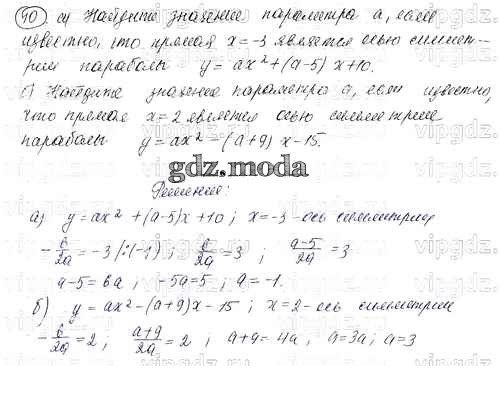 40 а) Найдите значение параметра а, если
известно, что прямая x = -3 является осью симмет-
рии параболы y = ax² + (a-5) x + 10.
б) Найдите значение параметра а, если известно,
что прямая x = 2 является осью симметрии
параболы y = ax² - (a+9) x - 15.
gdz.moda
Решение:
а) y = ax² + (a-5)x + 10 ; x = -3 - ось симметрии
- b/2a = -3 /:(-1) ; b/2a = 3 ; a-5/2a = 3
a-5 = 6a ; -5a = 5 ; a = -1.
б) y = ax² - (a+9)x - 15 ; x = 2 - ось симметрии
- b/2a = 2 ; a+9/2a = 2 ; a+9 = 4a ; a = 3a ; a = 3